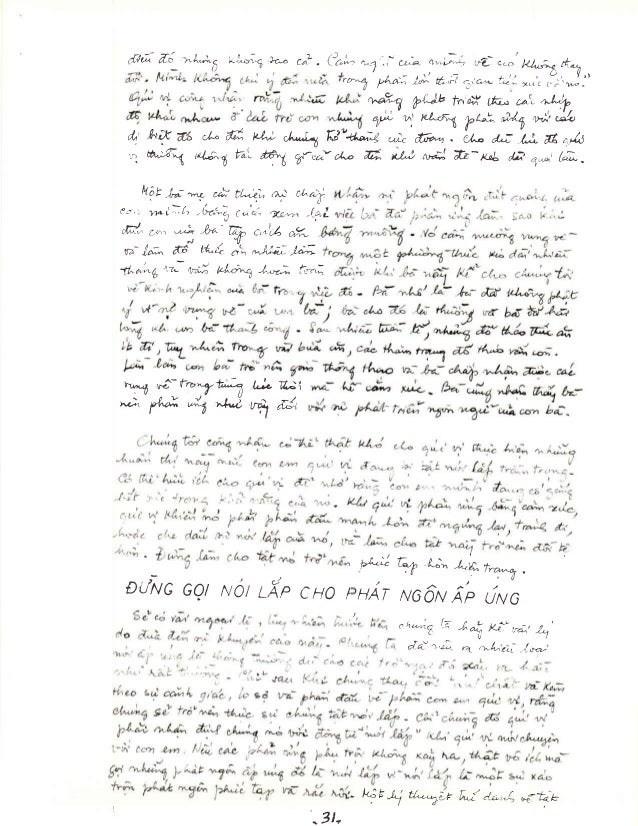 điều đó nhưng không sao cả. Cảm nghĩ của mình về nó không thay
đổi. Mình không chú ý đến nữa trong phần lớn thời gian tiếp xúc với nó."
Quí vị công nhận rằng nhiều khả năng phát triển theo cái nhịp
độ khác nhau ở các trẻ con nhưng quí vị không phản ứng với các
dị biệt đó cho đến khi chúng trở thành cực đoan. Cho dù lúc đó quí
vị thường không tác động gì cả cho đến khi vấn đề kéo dài quá lâu.
Một bà mẹ cải thiện sự chấp nhận sự phát ngôn đứt quãng của
con mình bằng cách xem lại việc bà đã phản ứng làm sao khi
đứa con của bà tập cách ăn bằng muỗng. Nó cầm muỗng vụng về
và làm đổ thức ăn nhiều lần trong một phương thức kéo dài nhiều
tháng và vẫn không hoàn toàn được khi bà này kể cho chúng tôi
về kinh nghiệm của bà trong việc đó. Bà nhớ là bà đã không phật
ý vì sự vụng về của con bà; bà cho đó là thường và bà tỏ hài
lòng khi con bà thành công. Sau nhiều tuần lễ, những đổ tháo thức ăn
ít đi, tuy nhiên trong vài bữa ăn, các thảm trạng đổ tháo vẫn còn.
Lần lần con bà trở nên giỏi thông thạo và bà chấp nhận được các
vụng về trong từng lúc thời mà hề cảm xúc. Bà cũng nhận thấy bà
nên phản ứng như vậy đối với sự phát triển ngôn ngữ của con bà.
Chúng tôi công nhận có thể thật khó cho quí vị thực hiện những
huấn thị này nếu con em quí vị đang bị tật nói lắp trầm trọng.
Có thể hữu ích cho quí vị để nhớ rằng con em mình đang cố gắng
hết sức trong khả năng của nó. Khi quí vị phản ứng bằng cảm xúc,
quí vị khiến nó phải phấn đấu mạnh hơn để ngừng lại, tránh đi,
hoặc che dấu sự nói lắp của nó, và làm cho tật này trở nên tồi tệ
hơn. Đừng làm cho tật nó trở nên phức tạp hơn hiện trạng.
ĐỪNG GỌI NÓI LẮP CHO PHÁT NGÔN ẤP ÚNG
Sẽ có vài ngoại lệ, tuy nhiên trước tiên chúng ta hãy kể vài lý
do đưa đến sự khuyến cáo này. Chúng ta đã nêu ra nhiều loại
nói ấp úng là thông thường dù cho các trở ngại đó xấu và
như rất thường. sau khi chúng thay đổi chất và kèm
theo sự cảnh giác, lo sợ và phấn đấu về phần con em quí vị, rằng
chúng sẽ trở nên thực sự chứng tật nói lắp. chúng đó quí vị
phải nhận định chúng nó với động từ "nói lắp" khi quí vị nói chuyện
với con em. Nếu các phản ứng phụ trội không xảy ra, thật vô ích mà
gọi những phát ngôn ấp úng đó là nói lắp vì nói lắp là một sự xáo
trộn phát ngôn phức tạp và rắc rối. Một lý thuyết trứ danh về tật
.31.